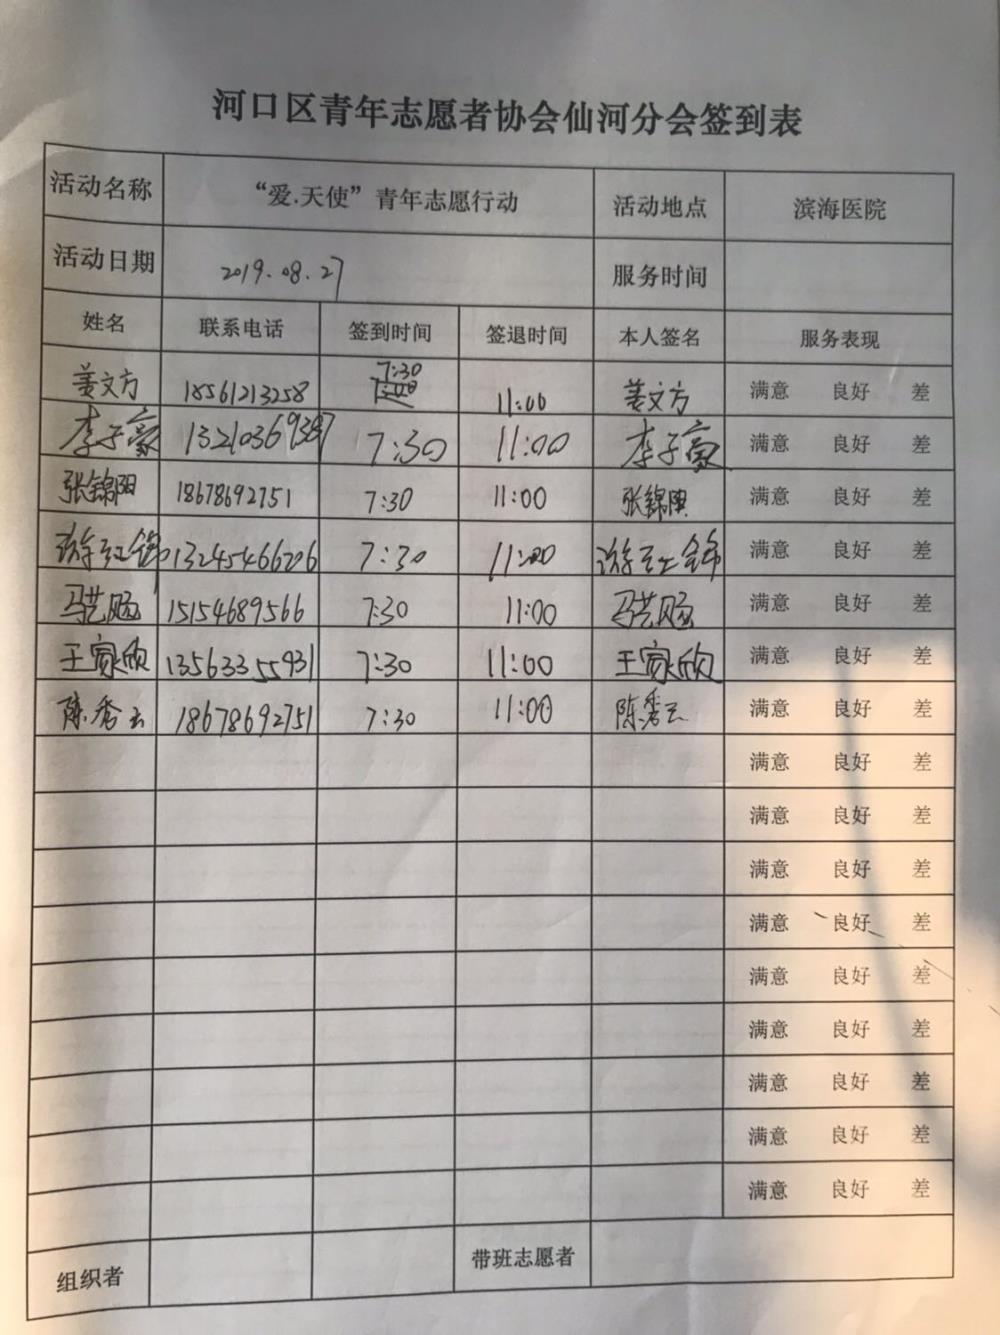 河口区青年志愿者协会仙河分会签到表
活动名称 “爱.天使”青年志愿行动 活动地点 滨海医院
活动日期 2019.08.27 服务时间
姓名 联系电话 签到时间 签退时间 本人签名 服务表现
姜文方 18561213258 7:30 11:00 姜文方 满意 良好 差
李子豪 13210369387 7:30 11:00 李子豪 满意 良好 差
张锦阳 18678692751 7:30 11:00 张锦阳 满意 良好 差
13245466206 7:30 11:00 满意 良好 差
马艺旸 15154689566 7:30 11:00 马艺旸 满意 良好 差
王家欣 13563355931 7:30 11:00 王家欣 满意 良好 差
陈秀云 18678692751 7:30 11:00 陈秀云 满意 良好 差
满意 良好 差
满意 良好 差
满意 良好 差
满意 良好 差
满意 良好 差
满意 良好 差
满意 良好 差
满意 良好 差
满意 良好 差
组织者 带班志愿者